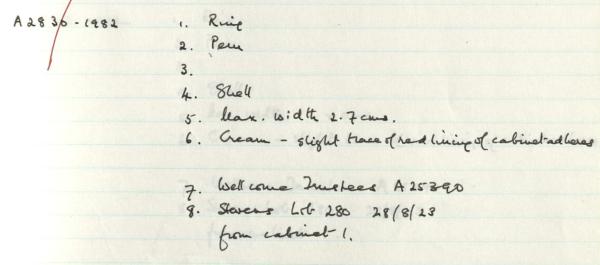 A2830-1982 1. Ring
2. Peru
3.
4. Shell
5. Max. width 2.7cms.
6. Cream - slight trace of red lining of cabinet adheres
7. Wellcome Trustees A25390
8. Stevens Lot 280 28/8/23
from cabinet 1.